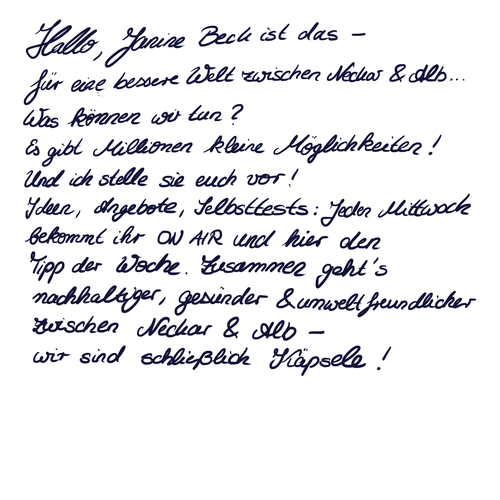 Hallo, Janine Beck ist das –
für eine bessere Welt zwischen Neckar & Alb...
Was können wir tun?
Es gibt Millionen kleine Möglichkeiten!
Und ich stelle sie euch vor!
Ideen, Angebote, Selbsttests: Jeden Mittwoch
bekommt ihr ON AIR und hier den
Tipp der Woche. Zusammen geht's
nachhaltiger, gesünder & umweltfreundlicher
zwischen Neckar & Alb –
wir sind schließlich Käpsele!